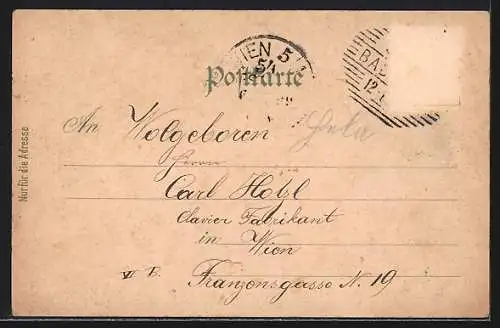 WIEN 5/1
5 4
BA
12
Postkarte
Nur für die Adresse
An Wolgeboren
Herrn
Carl Hotzl
Clavier Fabrikant
in
Wien
V B. Franzensgasse N. 19